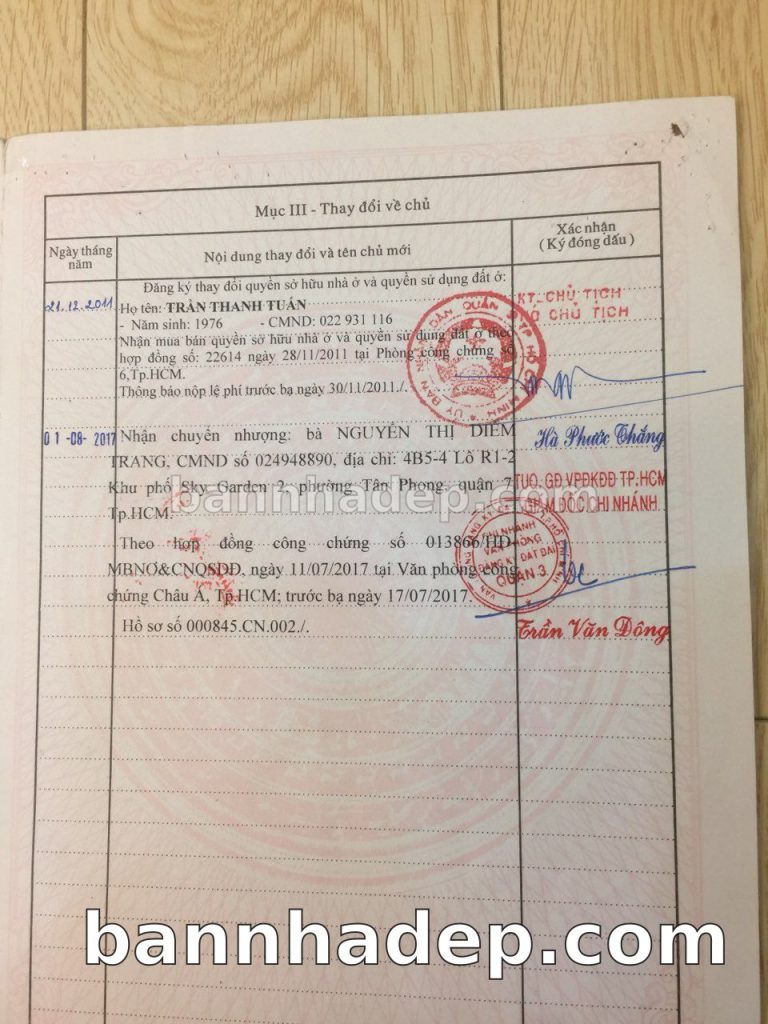 Mục III - Thay đổi về chủ
Ngày tháng năm
Nội dung thay đổi và tên chủ mới
Xác nhận
(Ký đóng dấu)
21.12.2011
Đăng ký thay đổi quyền sở hữu nhà ở và quyền sử dụng đất ở:
Họ tên: TRẦN THANH TUẤN
- Năm sinh: 1976 - CMND: 022 931 116
Nhận mua bán quyền sở hữu nhà ở và quyền sử dụng đất ở theo
hợp đồng số: 22614 ngày 28/11/2011 tại Phòng công chứng số
6,Tp.HCM.
Thông báo nộp lệ phí trước bạ ngày 30/11/2011./.
KT. CHỦ TỊCH
PHÓ CHỦ TỊCH
Hà Phước Thắng
bannhadep.com
01-08-2017
Nhận chuyển nhượng: bà NGUYỄN THỊ DIỄM
TRANG, CMND số 024948890, địa chỉ: 4B5-4 Lô R1-2
Khu phố Sky Garden 2, phường Tân Phong, quận 7,
Tp.HCM.
Theo hợp đồng công chứng số 013866/HĐ-
MBNO&CNQSDĐ, ngày 11/07/2017 tại Văn phòng công
chứng Châu Á, Tp.HCM; trước bạ ngày 17/07/2017.
Hồ sơ số 000845.CN.002./.
TUQ. GĐ VPĐKĐĐ TP.HCM
GIÁM ĐỐC CHI NHÁNH
CHI NHÁNH
VĂN PHÒNG
ĐĂNG KÝ ĐẤT ĐAI
QUẬN 3
Trần Văn Đông
bannhadep.com
bannhadep.com